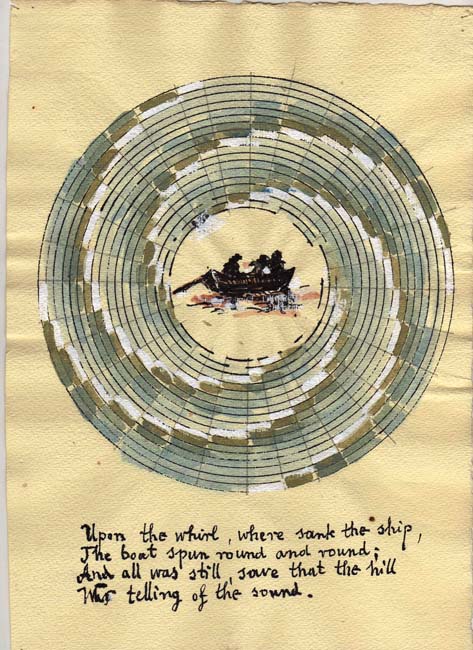 Upon the whirl, where sank the ship,
The boat spun round and round;
And all was still, save that the hill
Was telling of the sound.